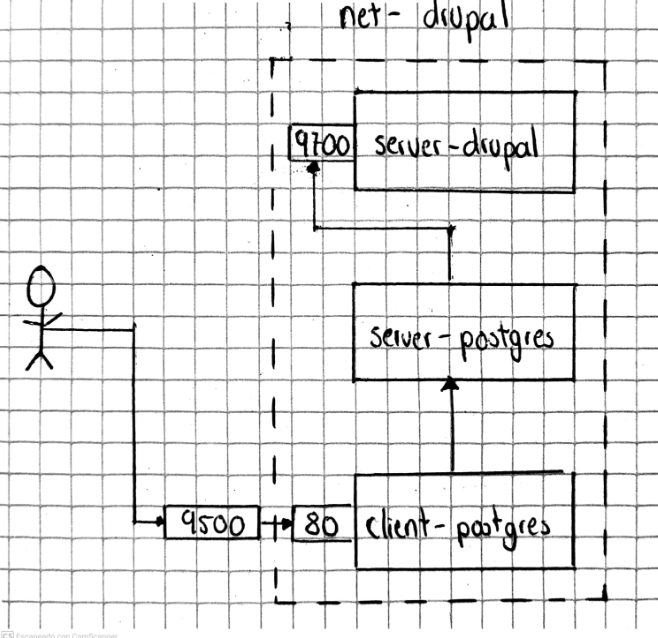 net- drupal
9700 server-drupal
server-postgres
9500 80 client-postgres
CS Escaneado con CamScanner